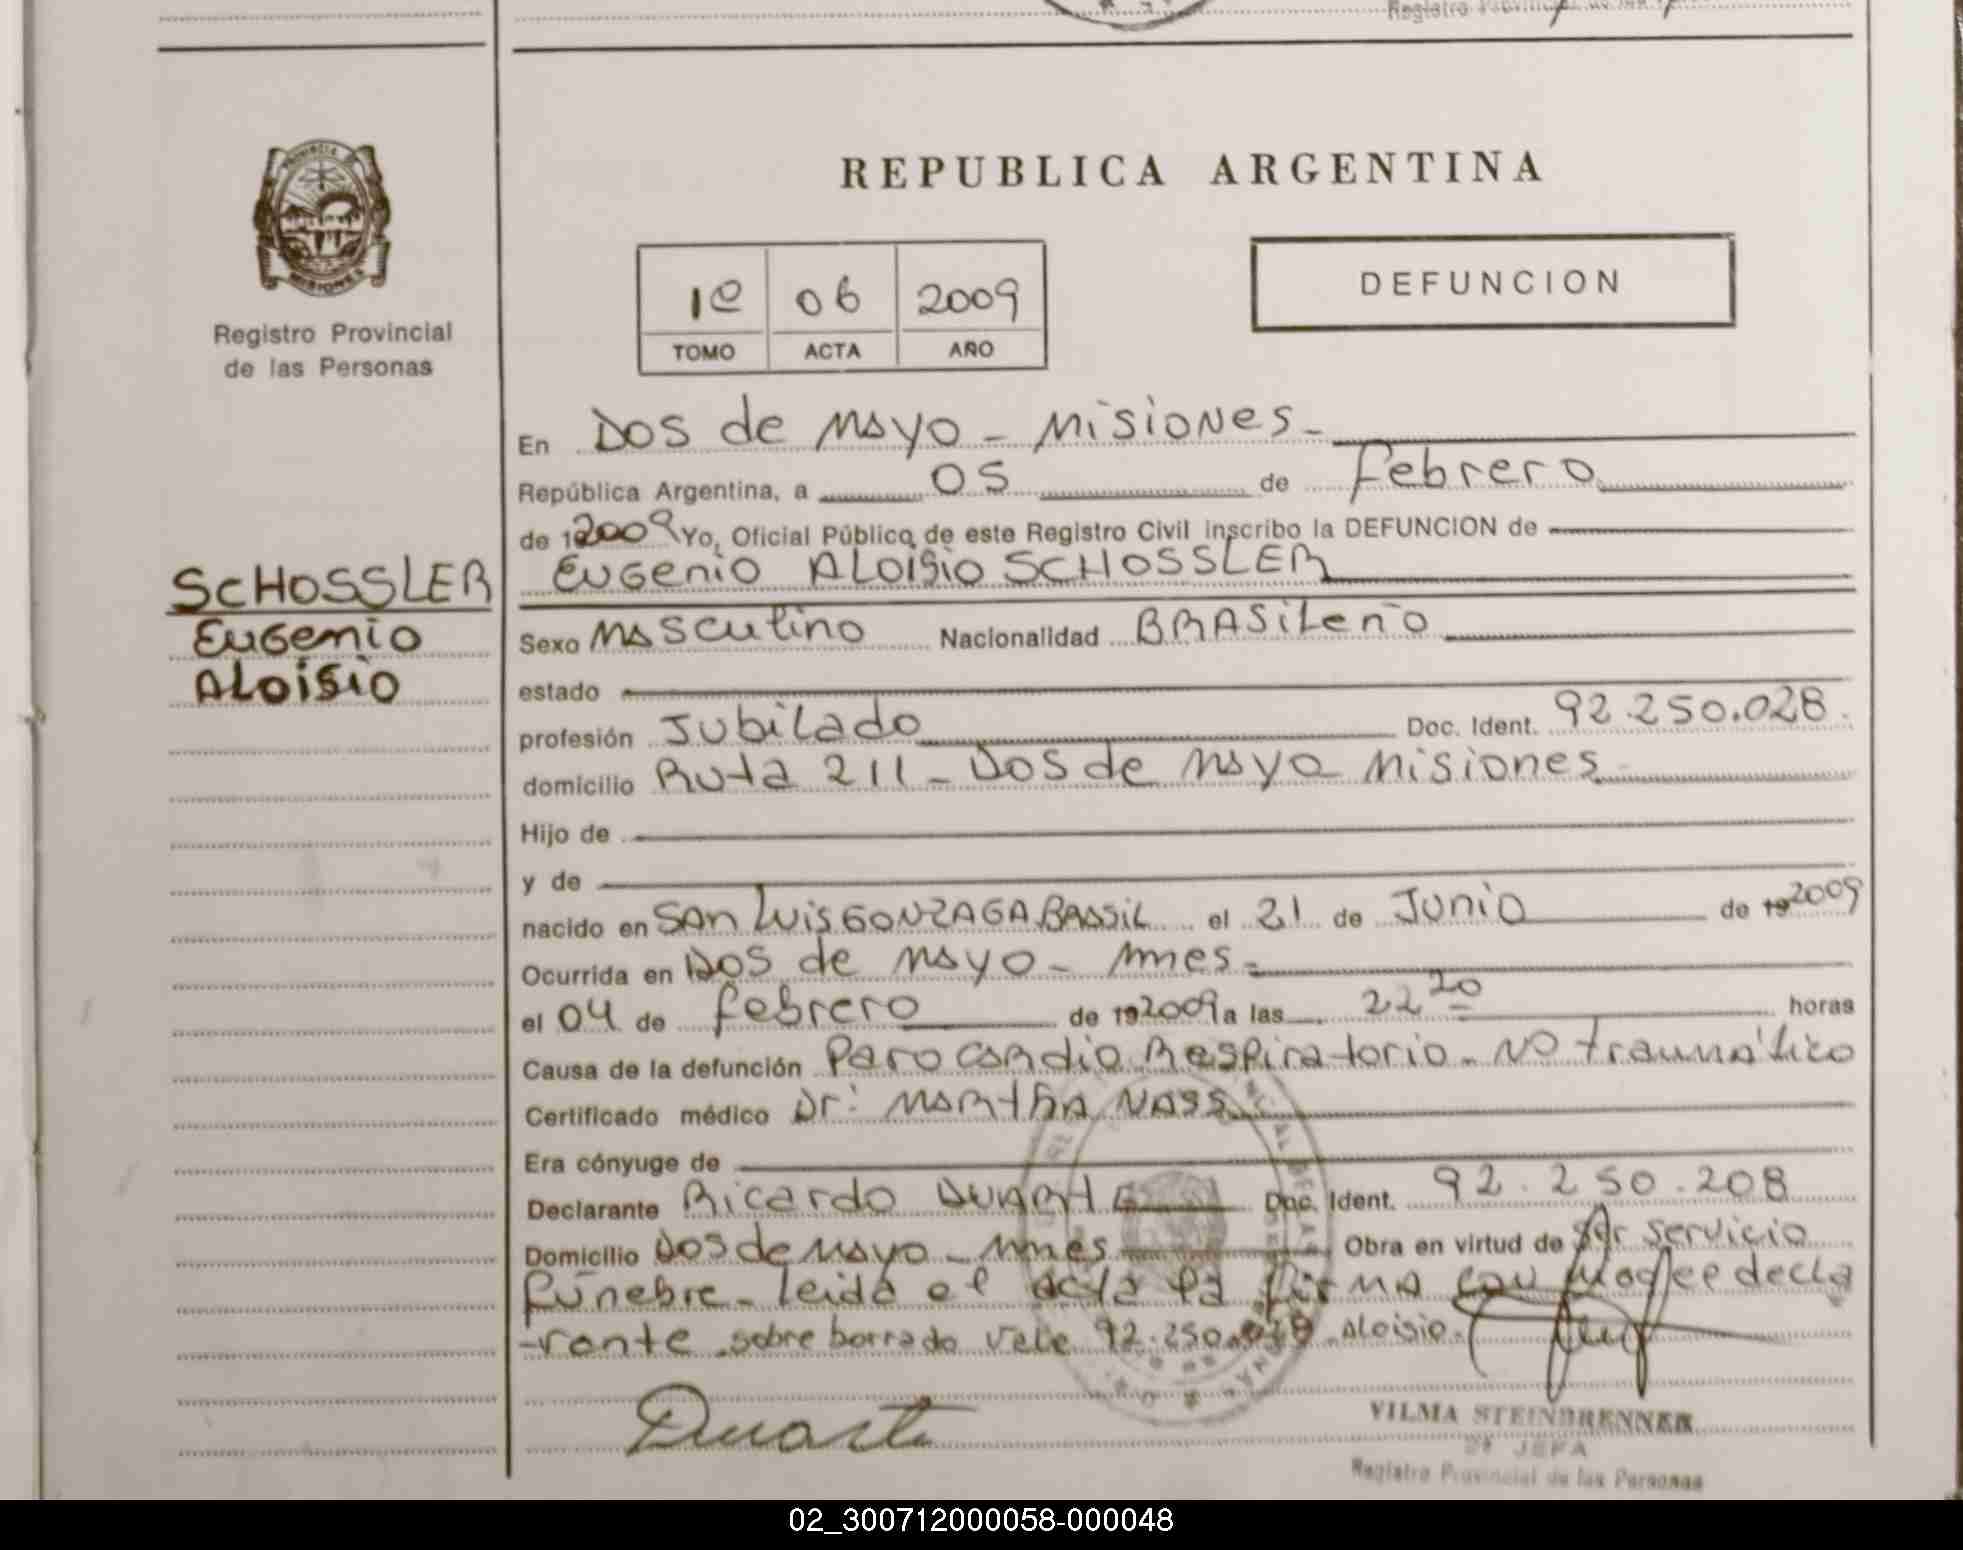 Registro Provincial de las Per
PROVINCIA DE
MISIONES
Registro Provincial
de las Personas
SCHOSSLER
EUGenio
ALOISIO
REPUBLICA ARGENTINA
1º 06 2009
TOMO ACTA AÑO
DEFUNCION
En Dos de Mayo - Misiones -
República Argentina, a 05 de Febrero
de 12009 Yo, Oficial Público de este Registro Civil inscribo la DEFUNCION de
EUGenio ALOISIO SCHOSSLER
Sexo Masculino Nacionalidad BRASiLeño
estado
profesión Jubilado Doc. Ident. 92.250.028.
domicilio Ruta 211 - Dos de Mayo Misiones
Hijo de
y de
nacido en San Luis GONZAGA BRASSIL el 21 de Junio de 19 2009
Ocurrida en Dos de Mayo - Mnes -
el 04 de febrero de 192009 a las 22 20 horas
Causa de la defunción Paro Cardio Respiratorio - No traumático
Certificado médico Dr: MARTHA NASS
Era cónyuge de
Declarante Ricardo DUARTE Doc. Ident. 92.250.208
Domicilio Dos de Mayo - Mnes Obra en virtud de Ser Servicio
fúnebre - leida el acta la firma con migo el decla
-rante sobre borrado vale 92.250.028 Aloisio.
Duarte
VILMA STEINBRENNER
2ª JEFA
Registro Provincial de las Personas
02_300712000058-000048